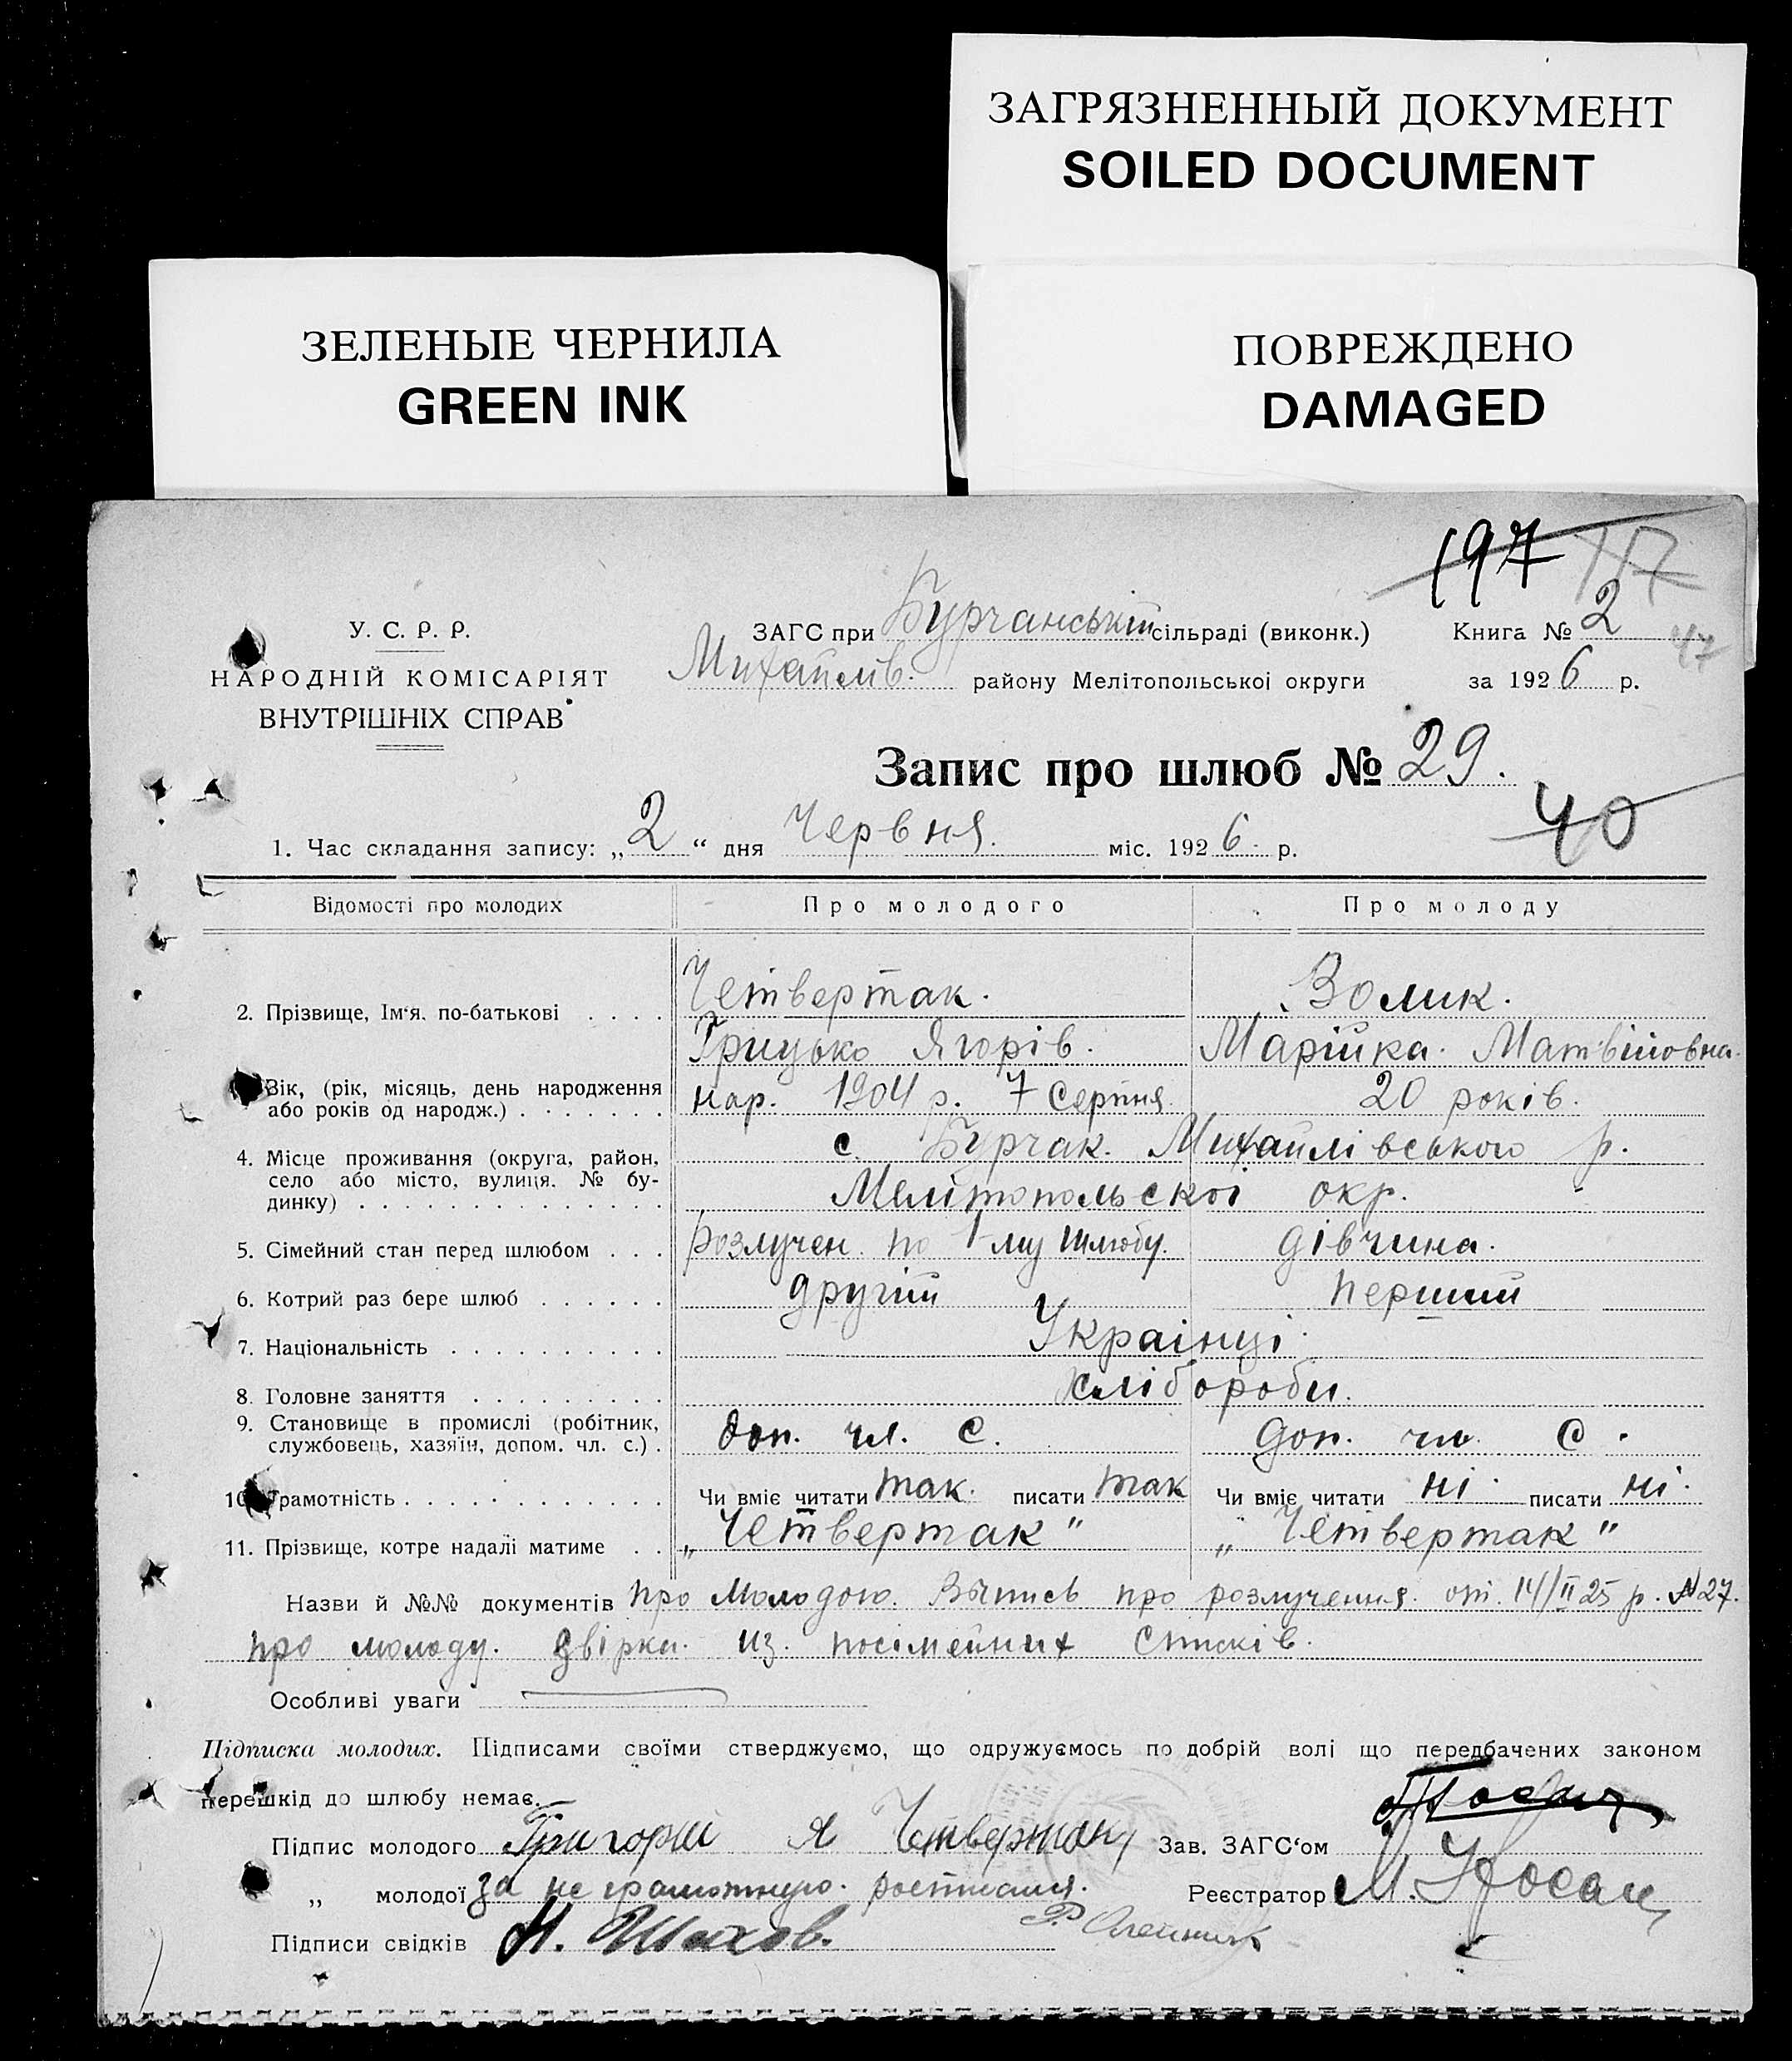 ЗАГРЯЗНЕННЫЙ ДОКУМЕНТ
SOILED DOCUMENT
ЗЕЛЕНЫЕ ЧЕРНИЛА
GREEN INK
ПОВРЕЖДЕНО
DAMAGED
197 117
У. С. Р. Р.
НАРОДНІЙ КОМІСАРІЯТ
ВНУТРІШНІХ СПРАВ
ЗАГС при Бурчанській сільраді (виконк.) Книга № 2
47
Михайлів. району Мелітопольської округи за 1926 р.
Запис про шлюб № 29.
40
1. Час складання запису: „2“ дня Червня. міс. 1926. р.
Відомості про молодих Про молодого Про молоду
2. Прізвище, Ім'я, по-батькові . . . . Четвертак. Волик.
Грицько Ягорів. Марійка. Матвійовна.
Вік, (рік, місяць, день народження або років од народж.) . . . . . . . нар. 1904 р. 7 Серпня 20 років.
4. Місце проживання (округа, район, село або місто, вулиця. № будинку) . . . . . . . . . . . . . . с. Бурчак. Михайлівського р.
Мелітопольскоі окр.
5. Сімейний стан перед шлюбом . . . розлучен. по 1-му шлюбу. дівчина.
6. Котрий раз бере шлюб . . . . . . другий перший
7. Національність . . . . . . . . . . Українці.
8. Головне заняття . . . . . . . . . хлібороби.
9. Становище в промислі (робітник, службовець, хазяїн, допом. чл. с.) . доп. чл. С. доп. чл. С.
10. Грамотність . . . . . . . . . . . . Чи вміє читати так. писати так Чи вміє читати ні. писати ні.
11. Прізвище, котре надалі матиме . . „Четвертак“ „Четвертак“
Назви й №№ документів про молодого. Выпись про розлучення. от. 14/II 25 р. № 27.
про молоду. звірка. из. посімейних списків.
Особливі уваги
Підписка молодих. Підписами своїми стверджуємо, що одружуємось по добрій волі що передбачених законом
перешкід до шлюбу немає.
Підпис молодого Григорий Я Четвертак Зав. ЗАГС'ом
„ молодої за не грамотную. Реєстратор М. Носач
Підписи свідків Н. Шахов. Р Олейник